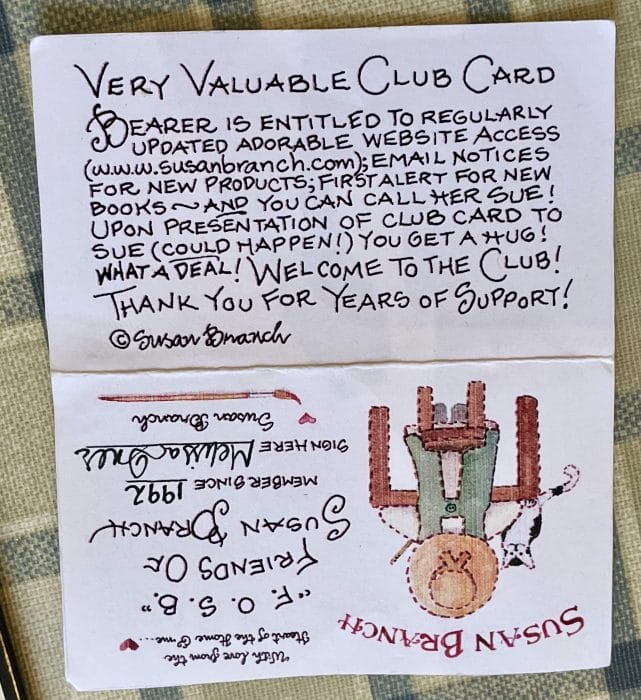 VERY VALUABLE CLUB CARD
BEARER IS ENTITLED TO REGULARLY
UPDATED ADORABLE WEBSITE ACCESS
(w.w.w.susanbranch.com); EMAIL NOTICES
FOR NEW PRODUCTS; FIRST ALERT FOR NEW
BOOKS ~ AND YOU CAN CALL HER SUE!
UPON PRESENTATION OF CLUB CARD TO
SUE (COULD HAPPEN!) YOU GET A HUG!
WHAT A DEAL! WELCOME TO THE CLUB!
THANK YOU FOR YEARS OF SUPPORT!
© Susan Branch
SUSAN BRANCH
"With love from the
Heart of the Home & me...
"F. O. S. B."
FRIENDS OF
SUSAN BRANCH
MEMBER SINCE 1992
SIGN HERE Melissa
Susan Branch